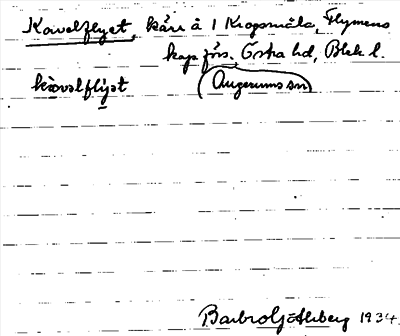 Kavelflyet, kärr å 1 Krogsmåla, Flymens
kap.förs. Östra hd, Blek l.
kavəlflyət (Augerums sn)
Barbro G:son Ahlberg 1934.